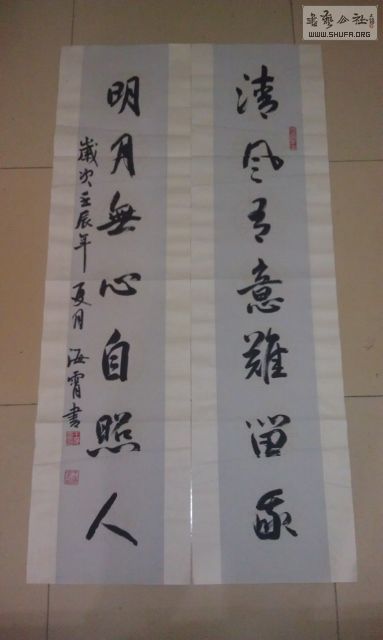 清风有意難留我
明月無心自照人
歲次壬辰年 夏月 海霄書
書藝公社
WWW.SHUFA.ORG